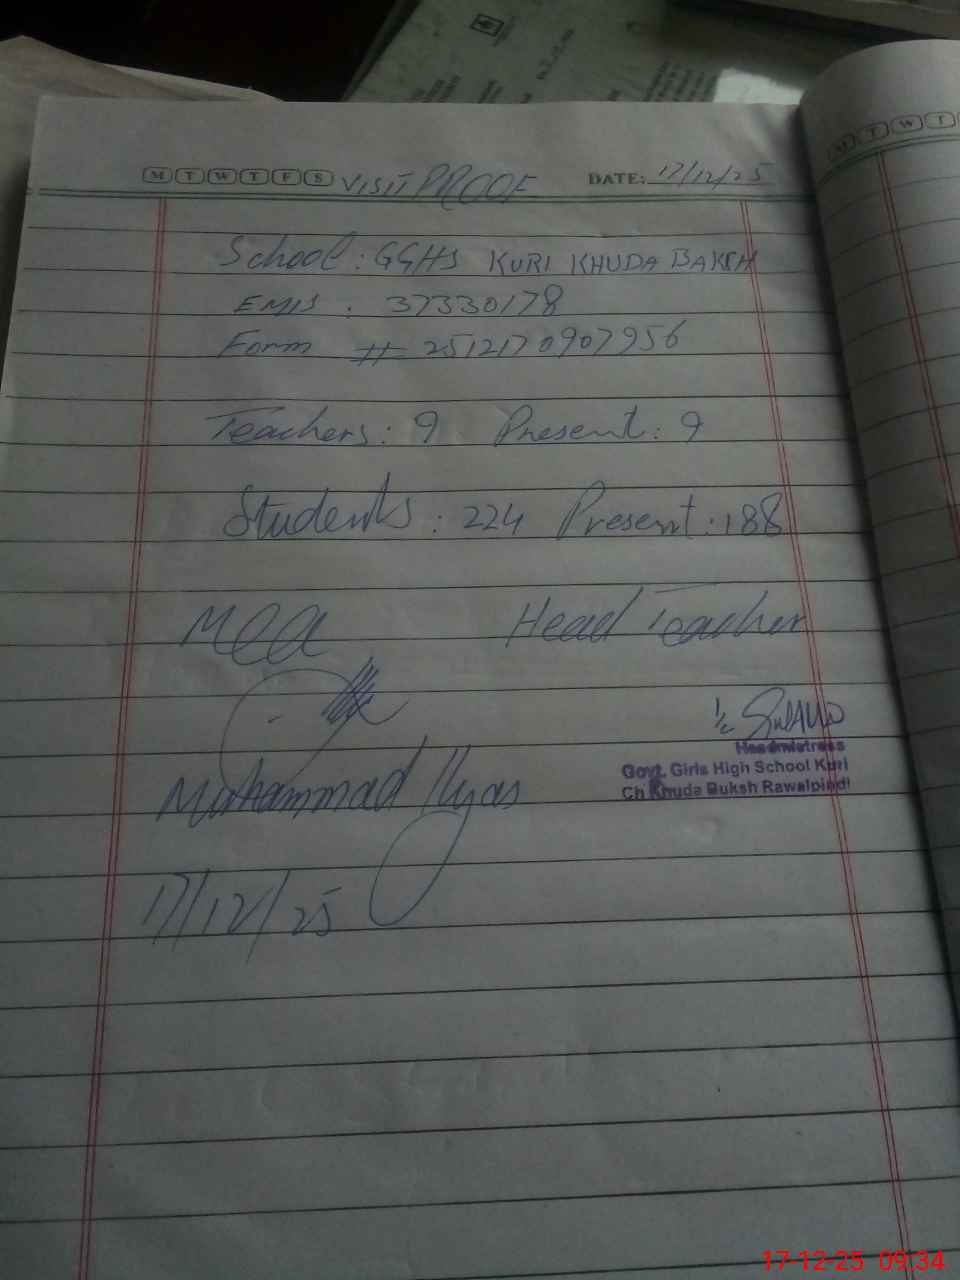 M T W T F S VISIT PROOF DATE: 17/12/25
School : GGHS KURI KHUDA BAKSH
EMIS : 37330178
Form # 2512170907956
Teachers : 9 Present : 9
Students : 224 Present : 188
MEA Head Teacher
Headmistress
Govt. Girls High School Kuri
Ch Khuda Buksh Rawalpindi
Muhammad Ilyas
17/12/25
M T W T
17-12-25 09:34